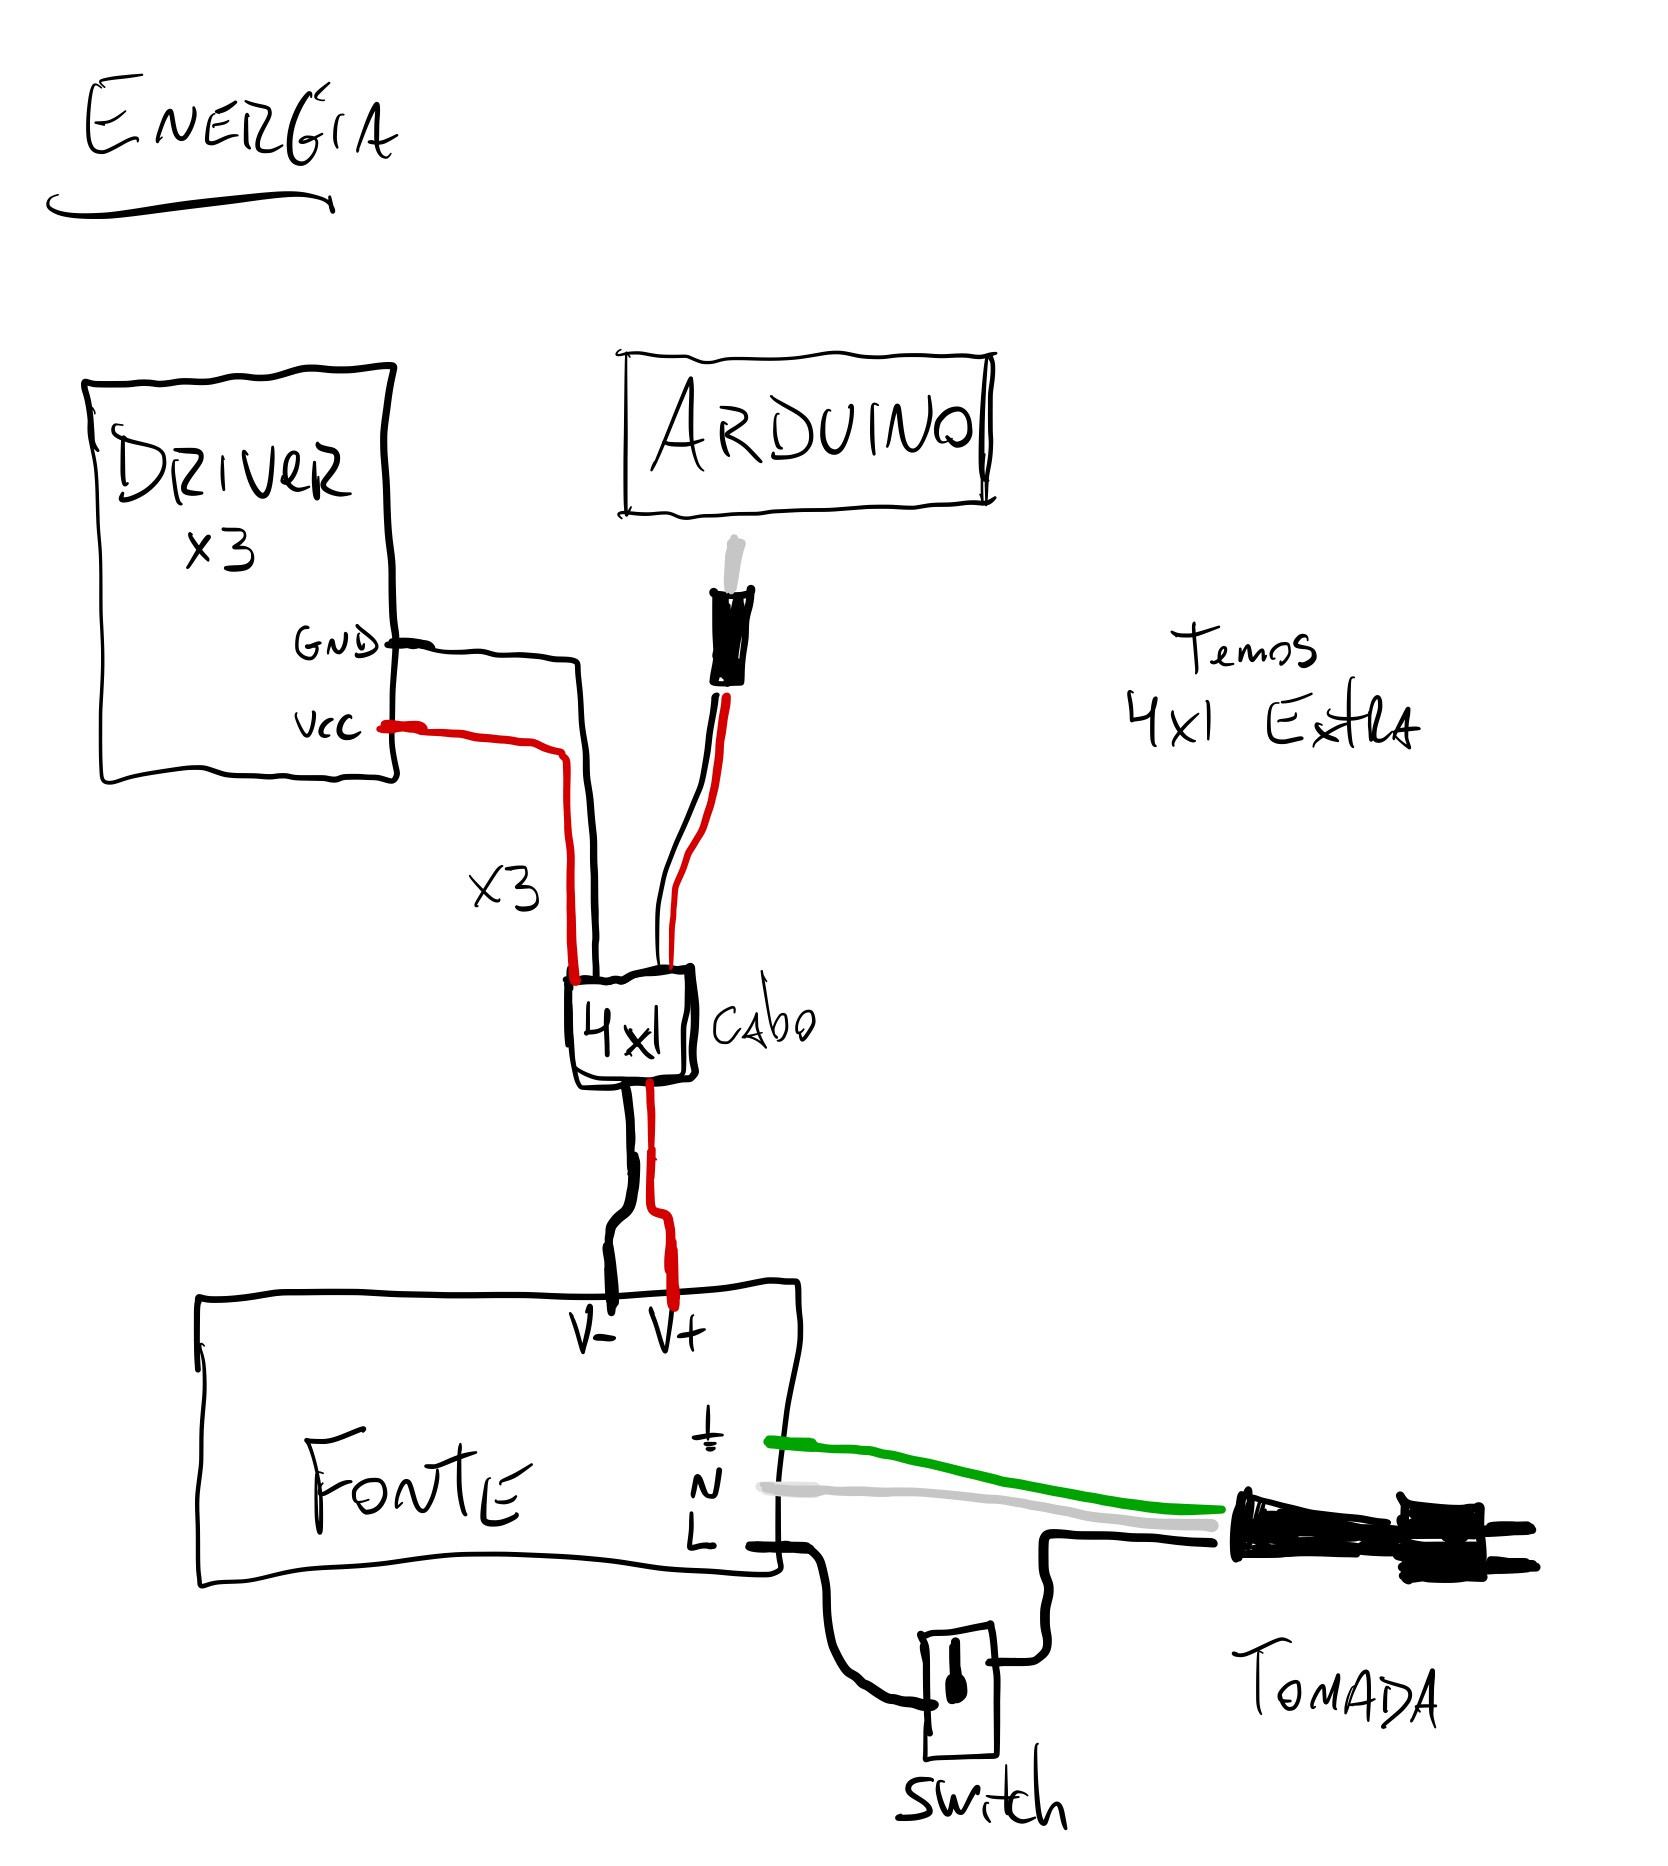 ENERGIA
DRIVER
x3
GND
VCC
ARDUINO
Temos
4x1 Extra
x3
4x1
Cabo
V- V+
FONTE
N
L
TOMADA
Switch